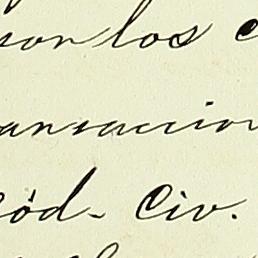 son los
ansaccion
Cód. Civ.